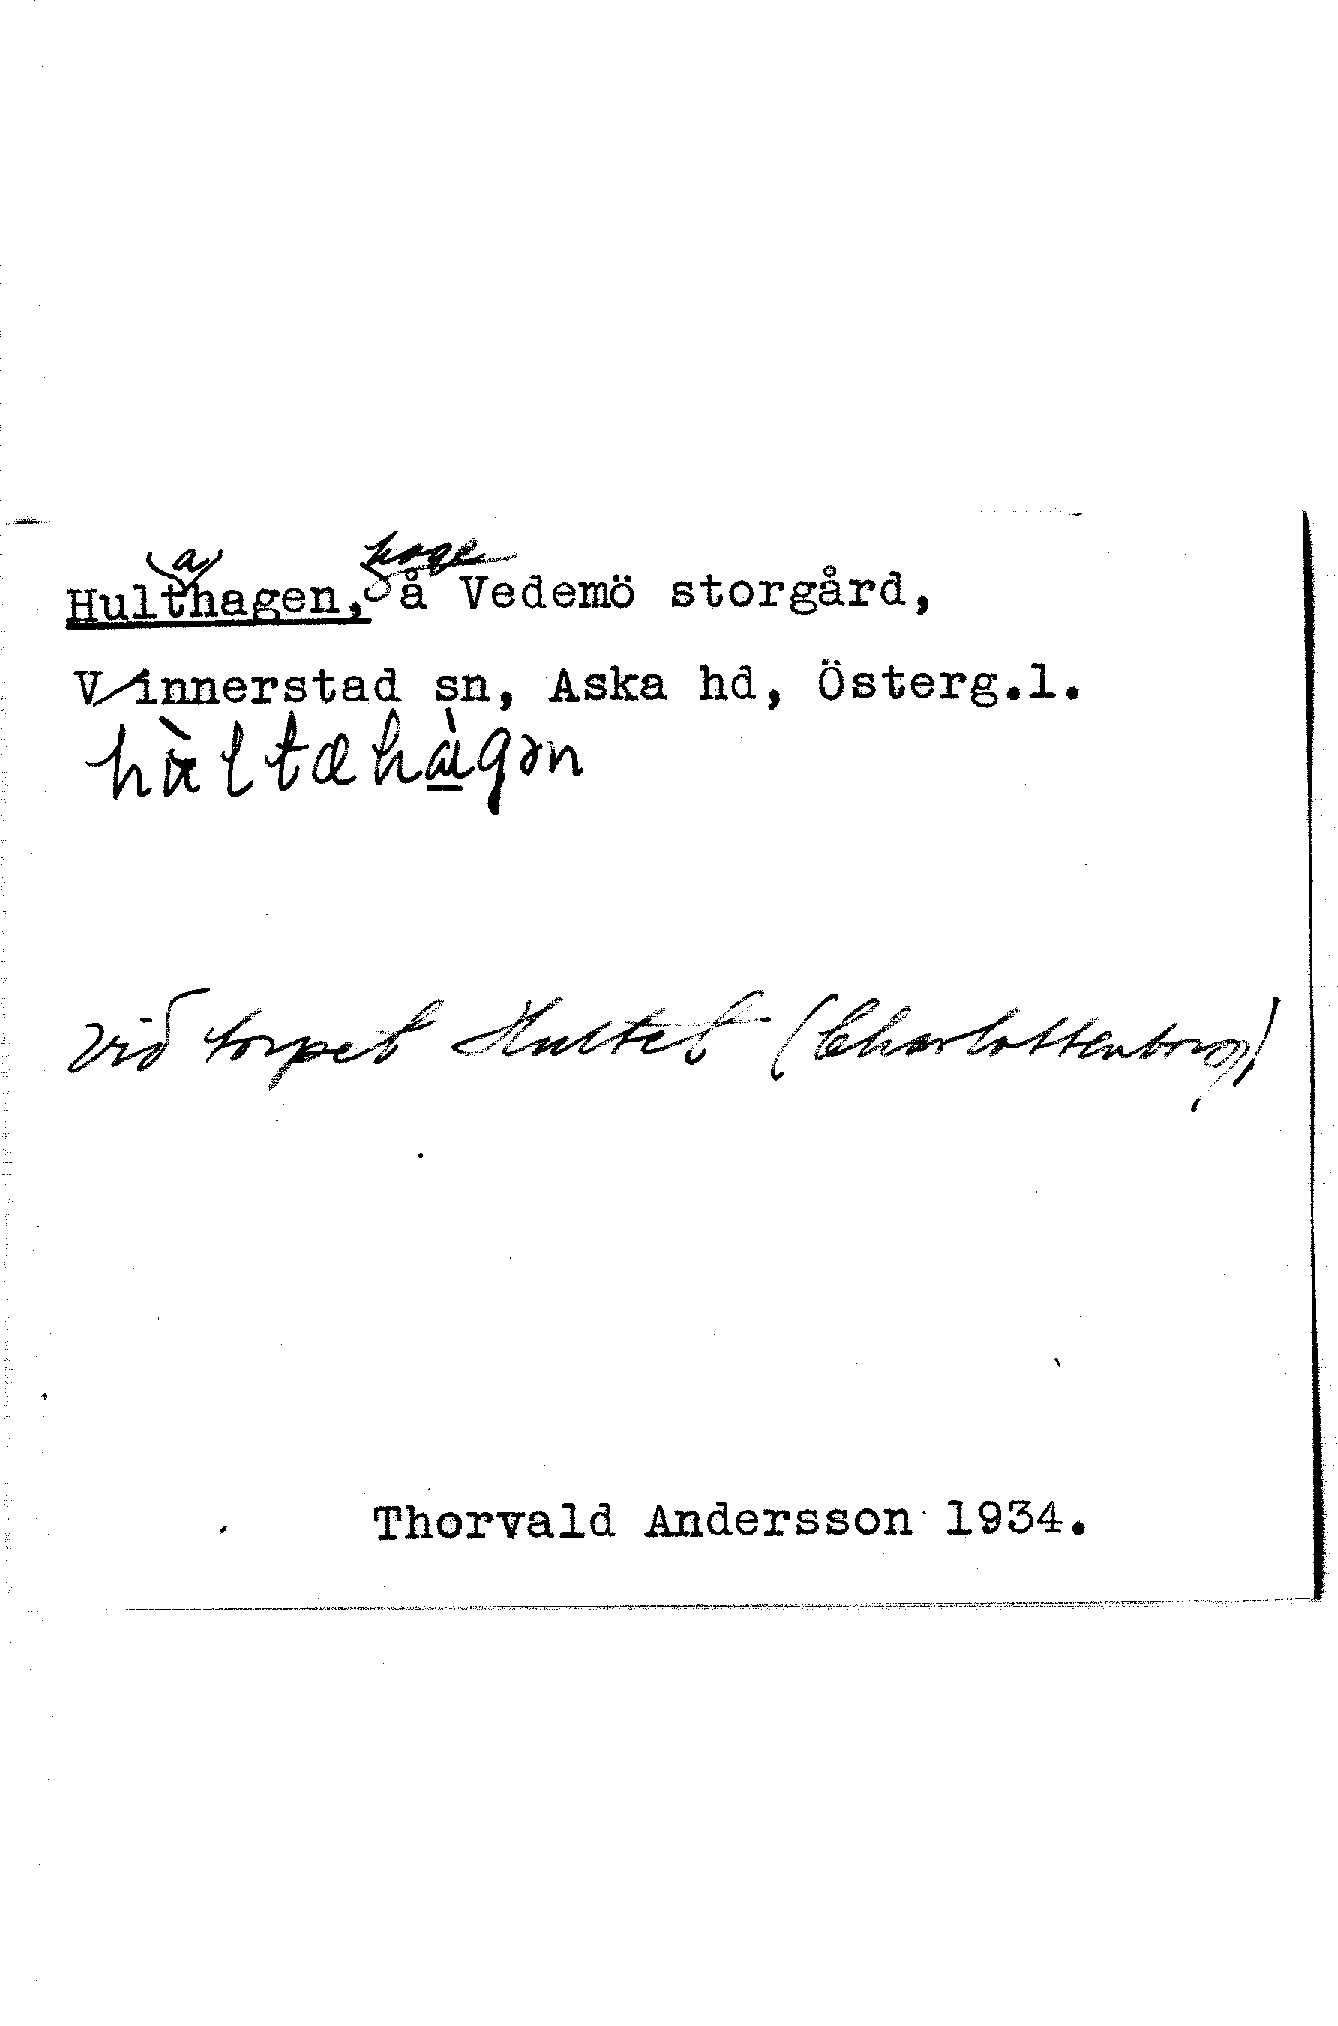 Hult(a)hagen, hage å Vedemö storgård,
Vinnerstad sn, Aska hd, Österg.l.
vid torpet Hultet (Charlottenborg)
Thorvald Andersson 1934.